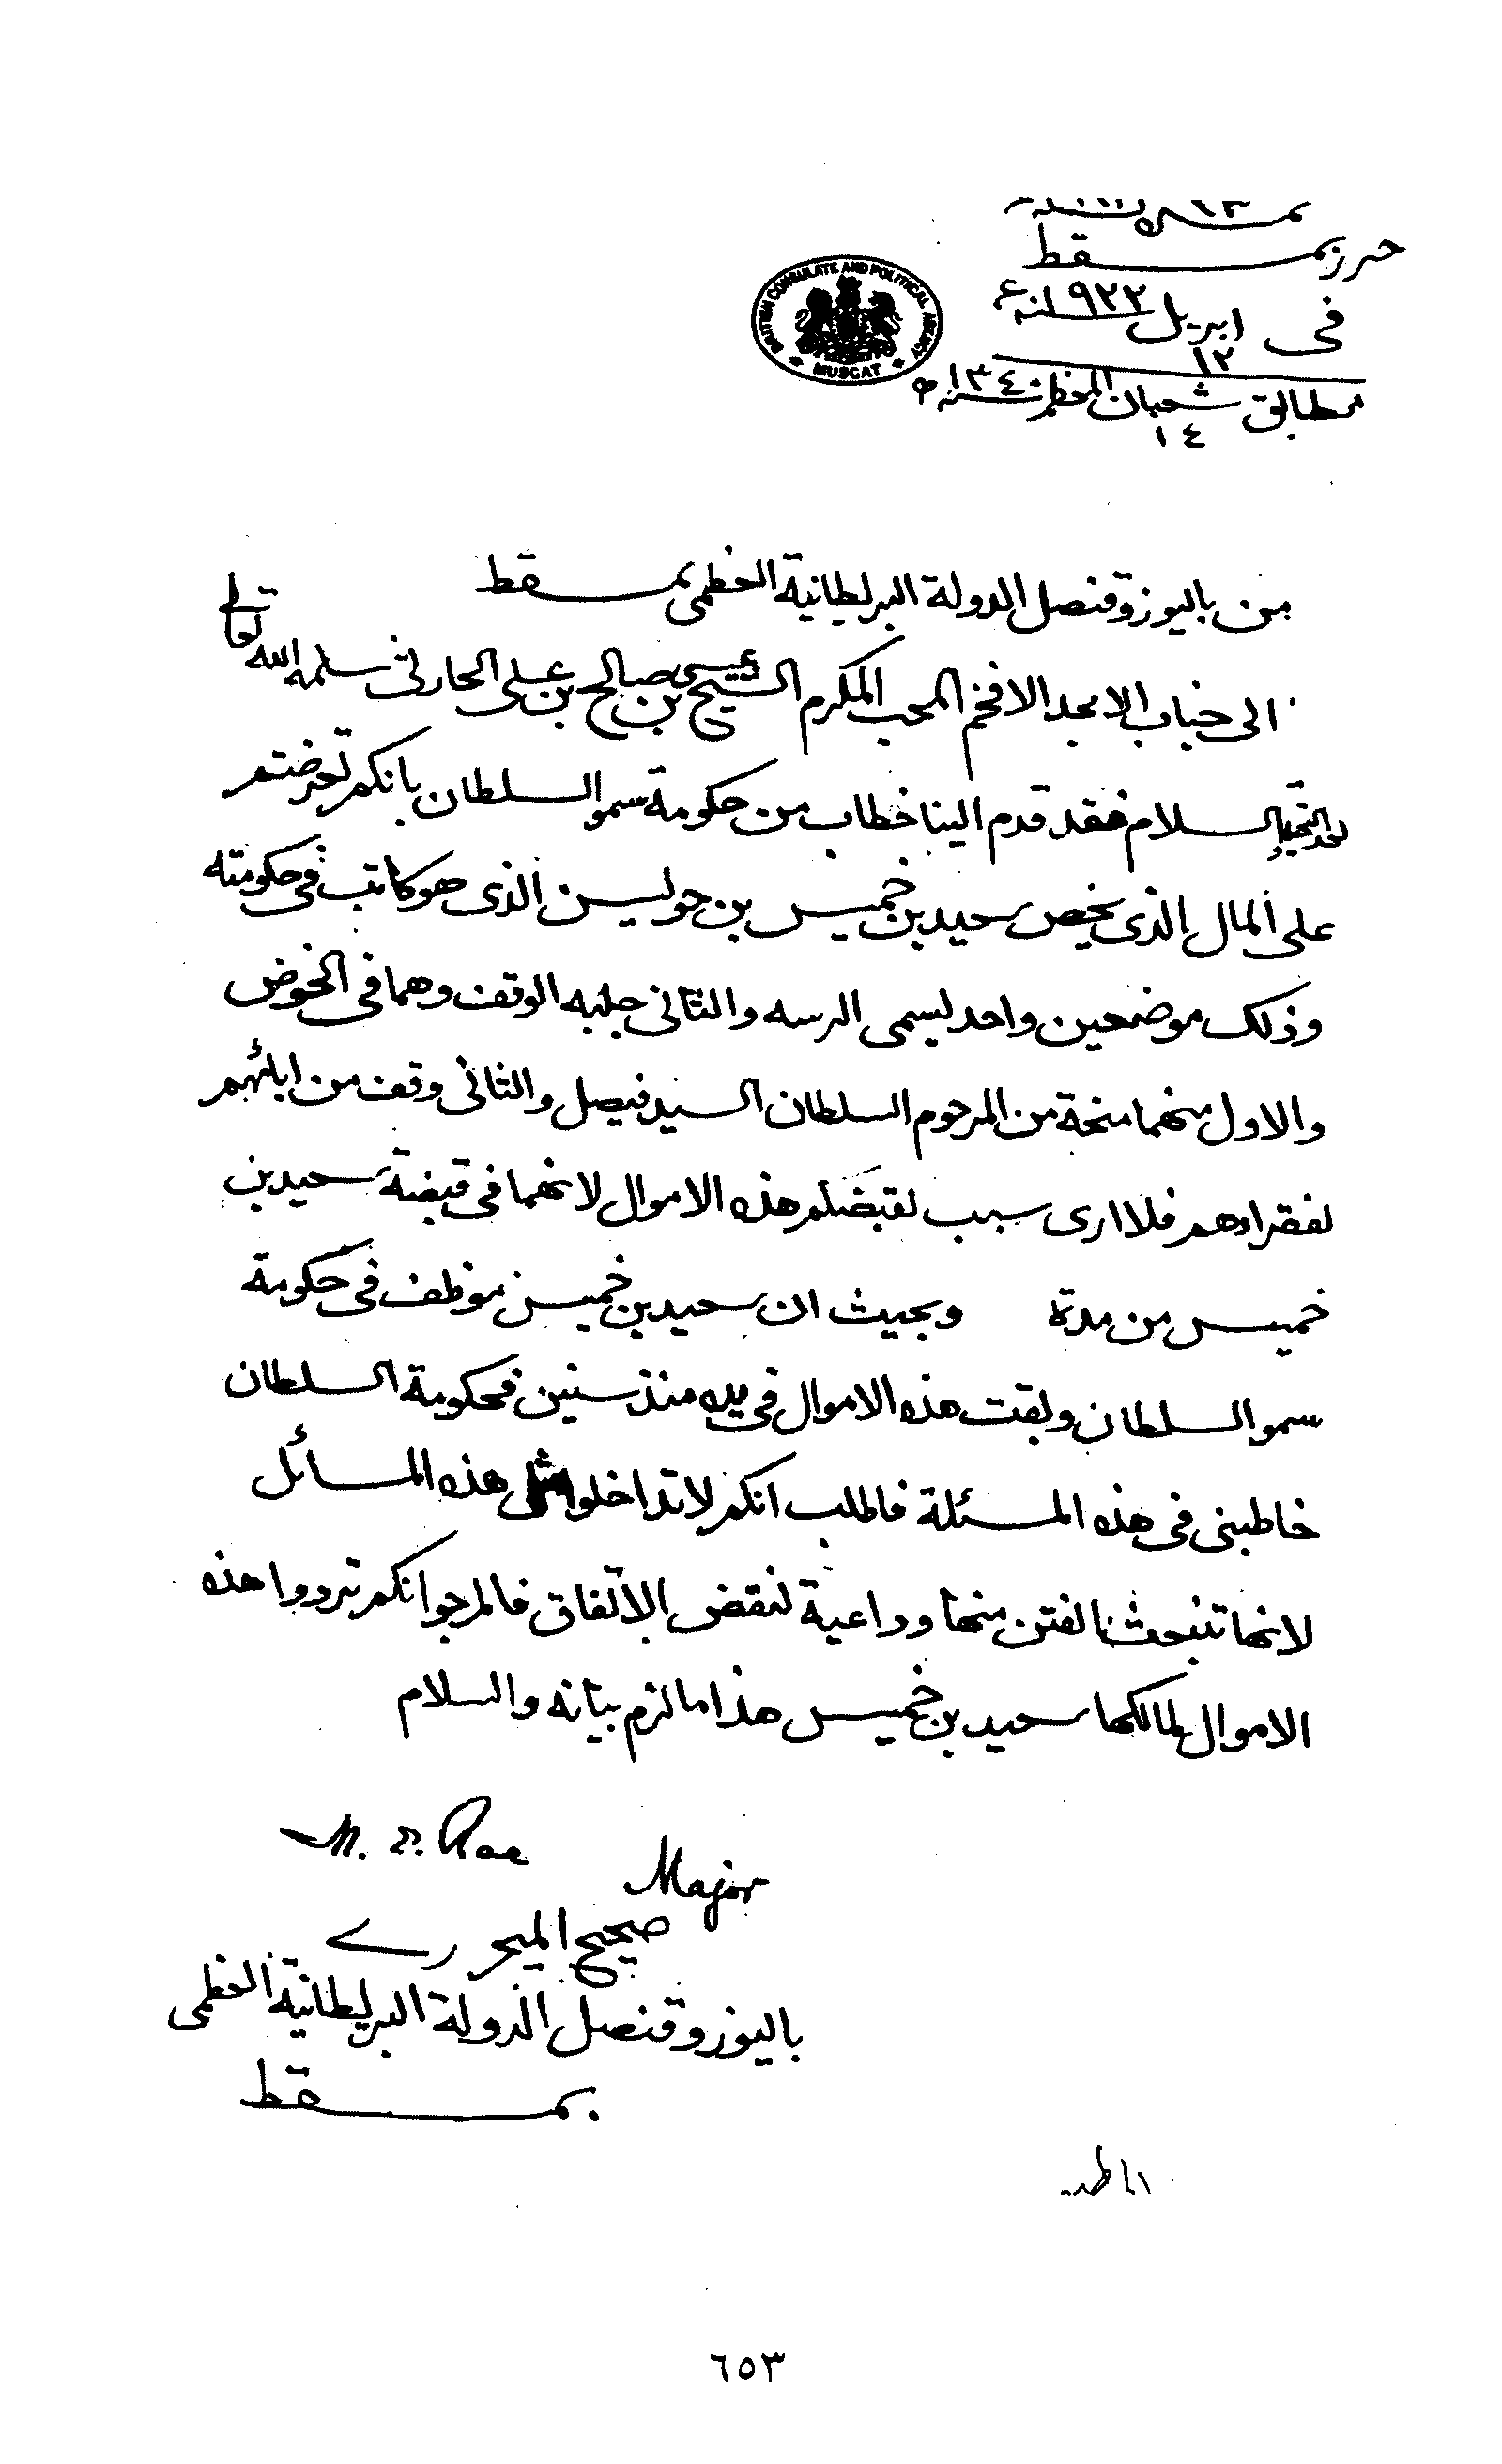 حرر بمسقط
في ١٢ ابريل سنة ١٩٢٢ء
مطابق ١٤ شعبان المعظم سنة ١٣٤٠ه
BRITISH CONSULATE AND POLITICAL AGENCY
MUSCAT
من باليوز وقنصل الدولة البرطانية العظمى بمسقط
الى جناب الامجد الافخم المحب المكرم الشيخ عيسى بن صالح بن علي الحارثي سلمه الله تعالى
بعد التحية والسلام فقد قدم الينا خطاب من حكومة سمو السلطان بانكم تعرضتم
على المال الذى يخص سعيد بن خميس بن جوليس الذى هو كاتب في حكومته
وذلك موضعين واحد يسمى الرسه والثاني جلبه الوقف وهما في الخوض
والاول منهما منحة من المرحوم السلطان السيد فيصل والثاني وقف من ابائهم
لفقراءهم فلا ارى سبب لقبضكم هذه الاموال لانهما في قبضة سعيد بن
خميس من مدة وبحيث ان سعيد بن خميس موظف في حكومة
سمو السلطان وبقت هذه الاموال في يده منذ سنين فحكومة السلطان
خاطبني في هذه المسئلة فاطلب انكم لا تداخلوا هذه المسائل
لانها تنبحث الفتن منها وداعية لنقض الاتفاق فالمرجو انكم تردوا هذه
الاموال لمالكها سعيد بن خميس هذا ما لزم بيانه والسلام
M. E. Rae
Major
صحيح الميجر رے
باليوز وقنصل الدولة البريطانية العظمى
بمسقط
٦٥٣